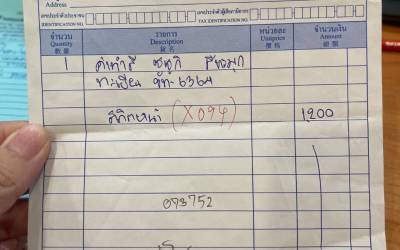 Address
เลขประจำตัวประชาชน
IDENTIFICATION NO.
เลขประจำตัวผู้เสียภาษีอากร
TAX IDENTIFICATION NO.
จำนวน รายการ หน่วยละ จำนวนเงิน
Quantity Description Unitprice Amount
數量 貨名 價格 銀額
1 ค่าทำสี ซูซูกิ สีขมุก
ทะเบียน 6364
(X094) 1,200
093752